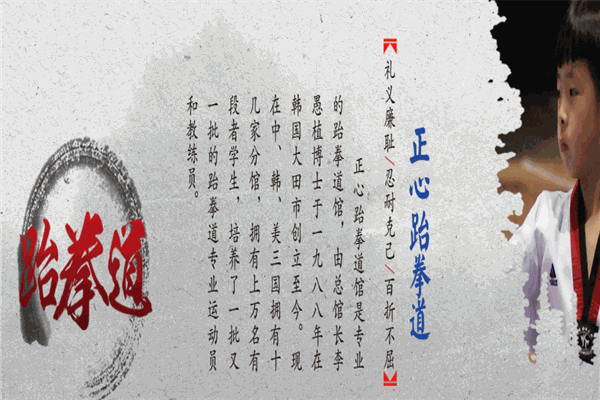 正心跆拳道
礼义廉耻/忍耐克己/百折不屈
正心跆拳道馆是专业
的跆拳道馆，由总馆长李
愚植博士于一九八八年在
韩国大田市创立至今。现
在中、韩、美三国拥有十
几家分馆，拥有上万名有
段者学生，培养了一批又
一批的跆拳道专业运动员
和教练员。
跆拳道